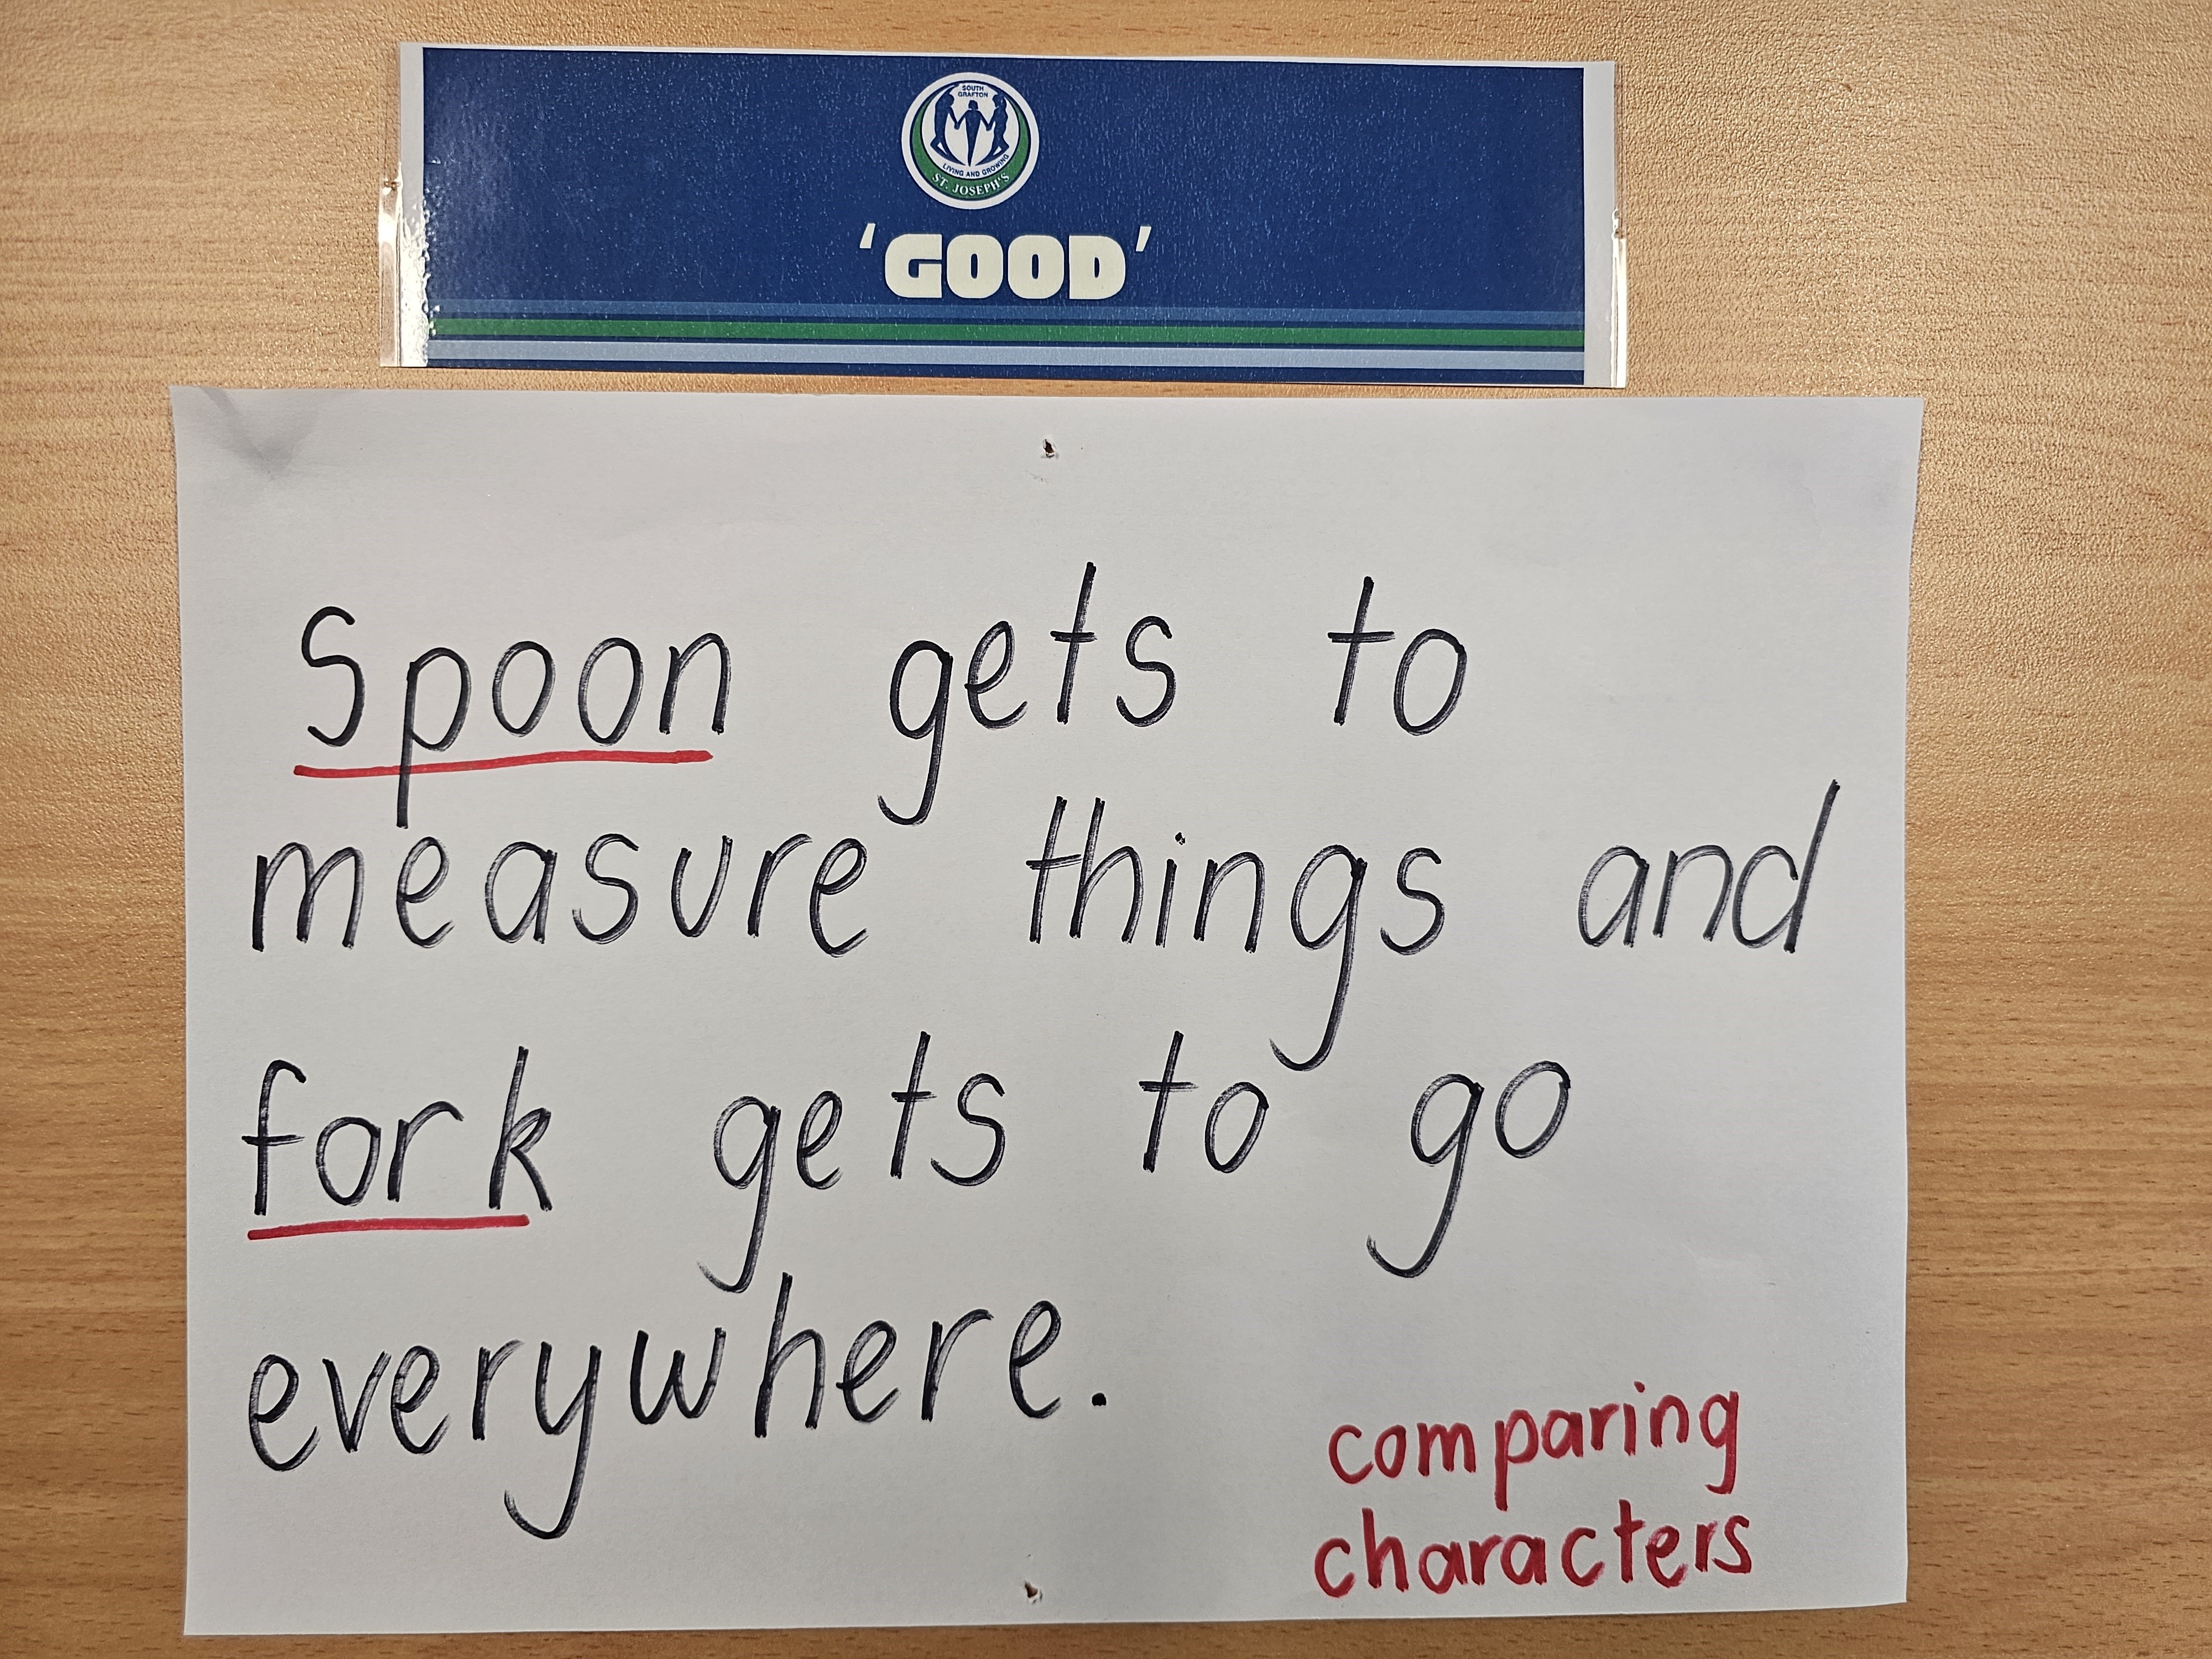 SOUTH
GRAFTON
LIVING AND GROWING
ST. JOSEPH'S
'GOOD'
Spoon gets to
measure things and
fork gets to go
everywhere.
comparing
characters